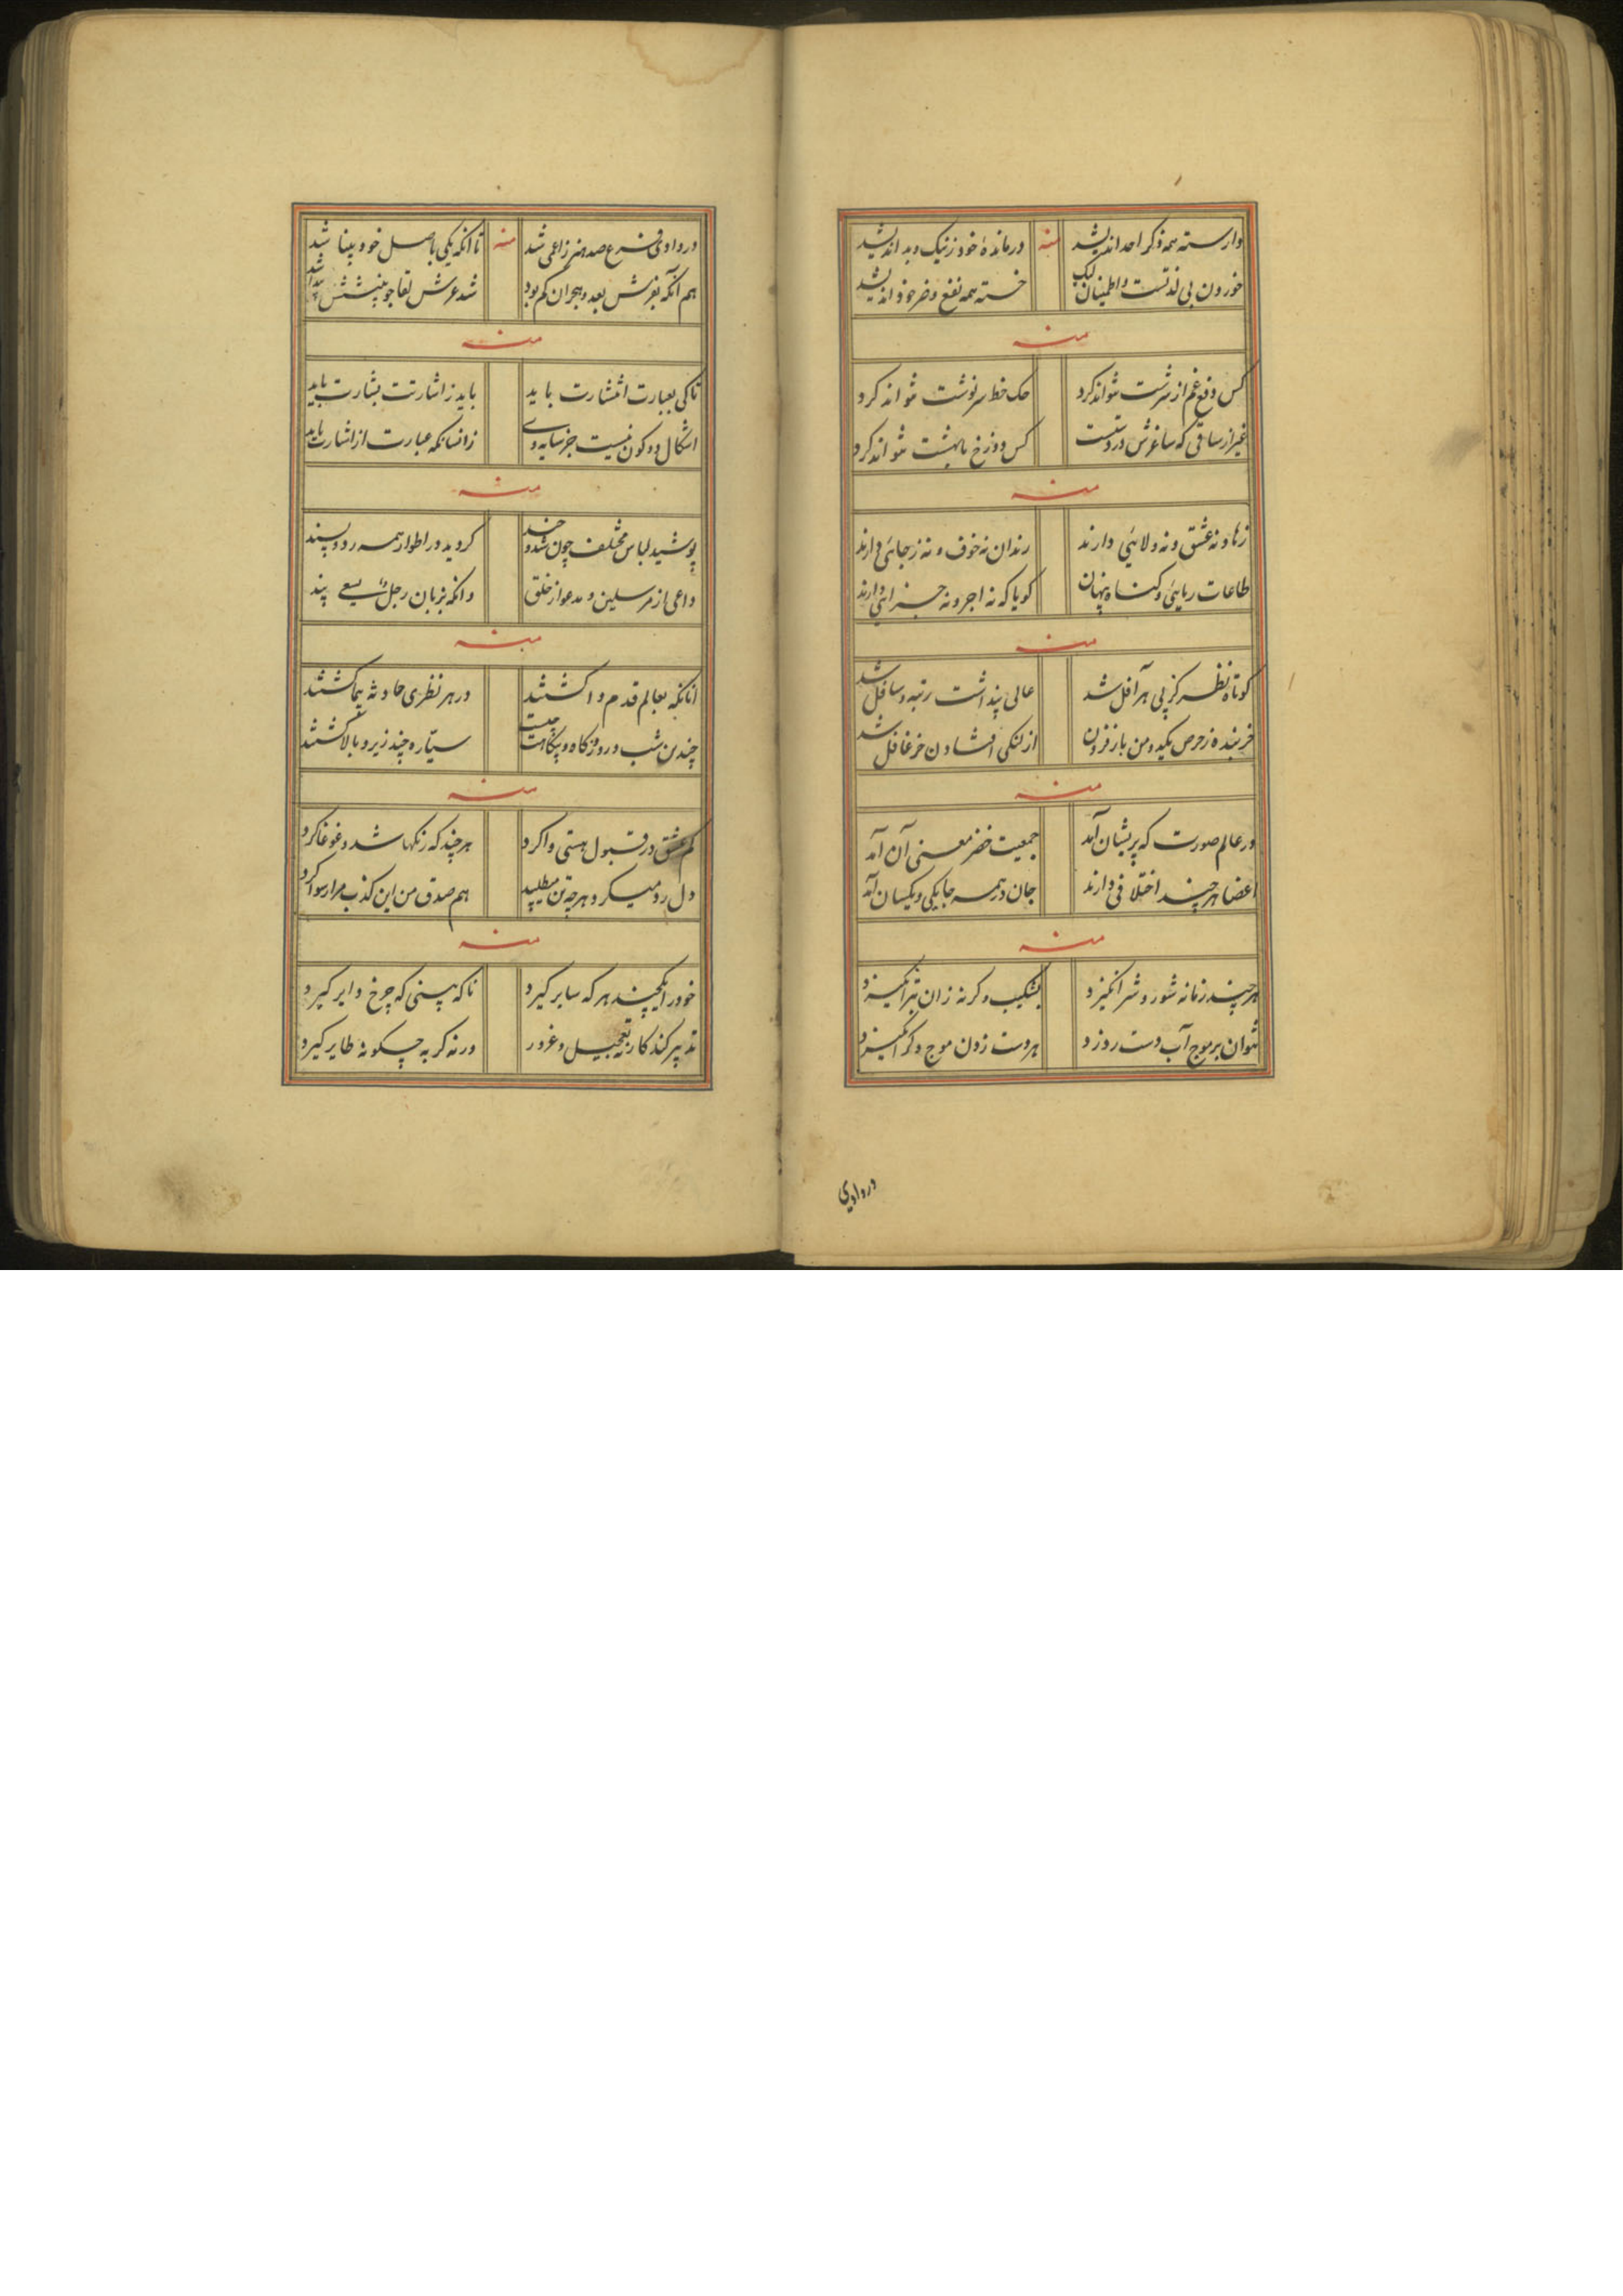 وارسته همه ذکر احد اندیشد منه درمانده خود ز نیک و بد اندیشد
خوردن بی لذتست و اطمینان لیک خسته همه نفع و ضر خود اندیشد
منه
کس دفع غم از سرشت نتواند کرد حک خط سرنوشت نتواند کرد
غیر از ساقی که ساغرش در دستست کس دوزخ ما بهشت نتواند کرد
منه
زهاد نه عشق و نه ولائی دارند رندان نه خوف و نه رجائی دارند
طاعات ریائی و کناه پنهان کویا که نه اجر و نه جزائی دارند
منه
کوتاه نظر کز پی هر آفل شد عالی پنداشت رتبه و سافل شد
خربنده ز حرص یکدو من بار فزون از لنکی افتادن خر غافل شد
منه
در عالم صورت که پریشان آمد جمعیت خضر معنی آن آمد
اعضا هر چند اختلافی دارند جان در همه جا یکی و یکسان آمد
منه
هر چند زمانه شور و شر انکیزد بشکیب وکرنه زان بتر انکیزد
نتوان بر موج آب دست رد زد هر دست زدن موج دکر انکیزد
در وادی
در وادی فرع صد هنر زاعمی شد منه تا انکه یکی باصل خود بینا شد
هم آنکه بفرش بعد و هجران کم بود شد عرش لقا جو بینشش پیدا شد
منه
تا کی بعبارت انتشارت باید باید ز اشارتت بشارت باید
اشکال دو کون نیست جز سایه وی زانسانکه عبارت از اشارت باید
منه
پوشید لباس مختلف چون شد و چند کردید در اطوار همه رد و پسند
داعی از مرسلین و مدعو از خلق وانکه بزبان رجل یسعی پند
منه
انانکه بعالم قدم وا کشتند در هر نظری حادثه پیما کشتند
چندین شب و روز و کاه و بیکاهت چیست سیاره چند زیر و بالا کشتند
منه
کم عشق در قبول هستی وا کرد هر چند که رنکها شد و غوغا کرد
دل رد میکرد هر چه تن میطلبید هم صدق من این کذب مرا رسوا کرد
منه
خود را بکجیند هر که سایر کیرد تا که بینی که چرخ دایر کیرد
تدبیر کند کار نه تعجیل و غرور ورنه کربه چکونه طایر کیرد